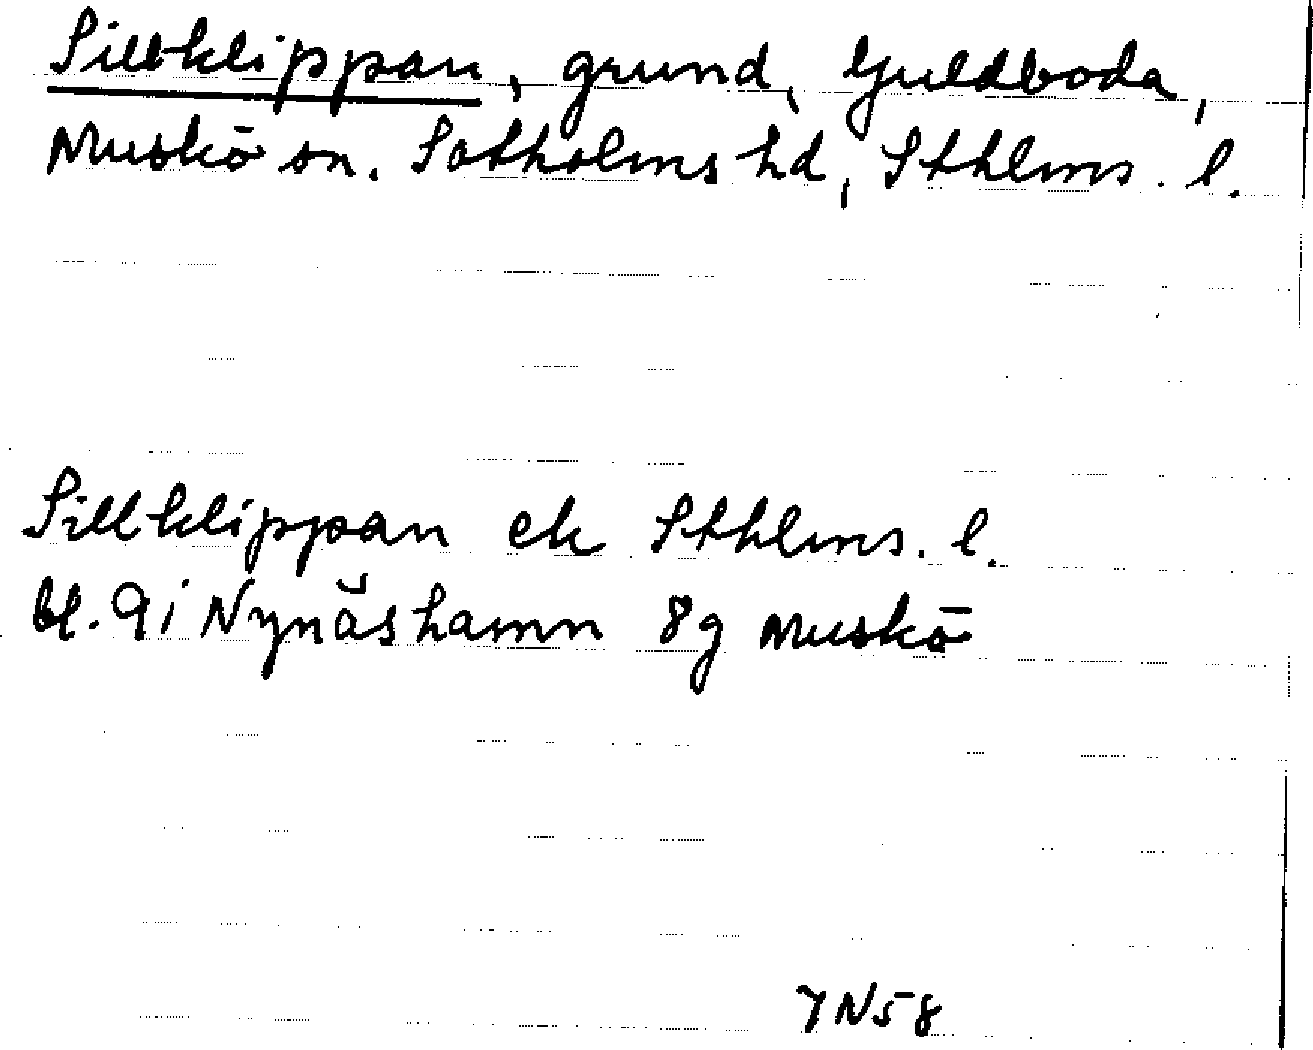 Sillklippan, grund, Guldboda,
Muskö sn. Sotholms hd, Sthlms. l.
Sillklippan ek Sthlms. l.
bl. 9i Nynäshamn 8g Muskö
YN58